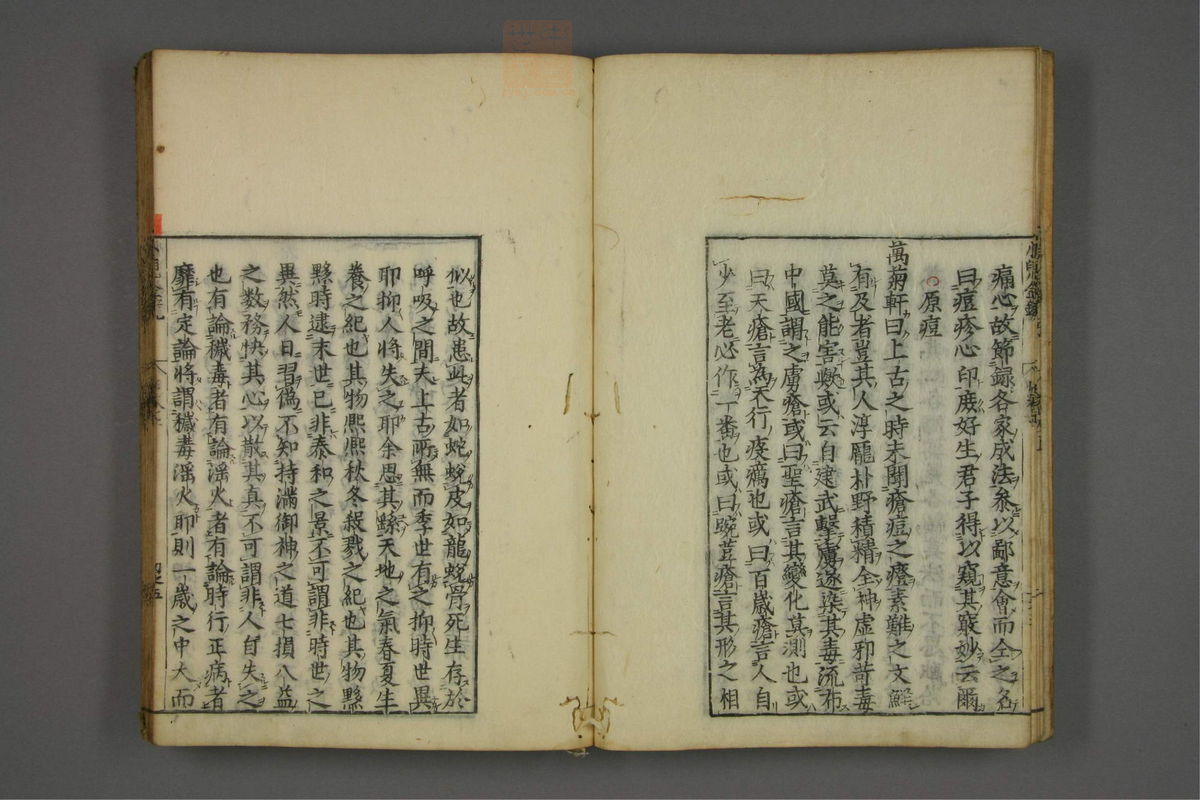 痛心故節録各家成法叅以鄙意會而全之名
曰痘疹心印庻好生君子得以窺其竅妙云爾
原痘
萬菊軒曰上古之時未聞瘡痘之癦素難之文鮮
有及者豈其人淳龎朴野積精全神虚邪苛毒
莫之能害歟或云自建武擊虜遂染其毒流布
中國謂之虜瘡或曰聖瘡言其變化莫測也或
曰天瘡言為天行疫癘也或曰百歳瘡言人自
少至老必作一番也或曰豌荳瘡言其形之相
似也故患此者如蛇蛻皮如龍蛻骨死生存於
呼吸之間夫上古所無而季世有之抑時世異
耶抑人將失之耶余思其繇天地之氣春夏生
養之紀也其物熈熈秋冬殺戮之紀也其物黙
黙時逮末世已非泰和之景不可謂非時世之
異然人日習偽不知持滿御神之道七損八益
之数務快其心以散其真不可謂非人自失之
也有論穢毒者有論淫火者有論時行正病者
靡有定論將謂穢毒淫火耶則一歳之中大而